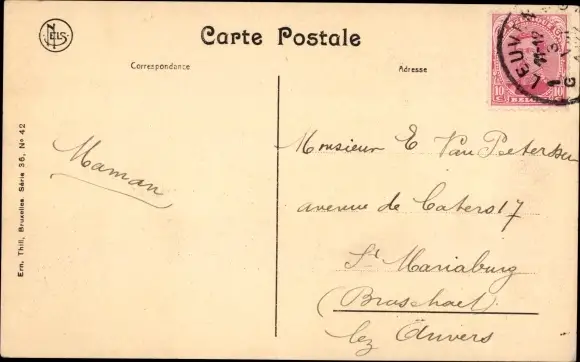 NELS
Carte Postale
Correspondance
Adresse
LEUVEN
10c 10c
Ern. Thill, Bruxelles. Série 36, No 42
Maman
Monsieur E Van Peeterssen
avenue de Caters 17
St Mariaburg
(Braschaet)
lez Anvers